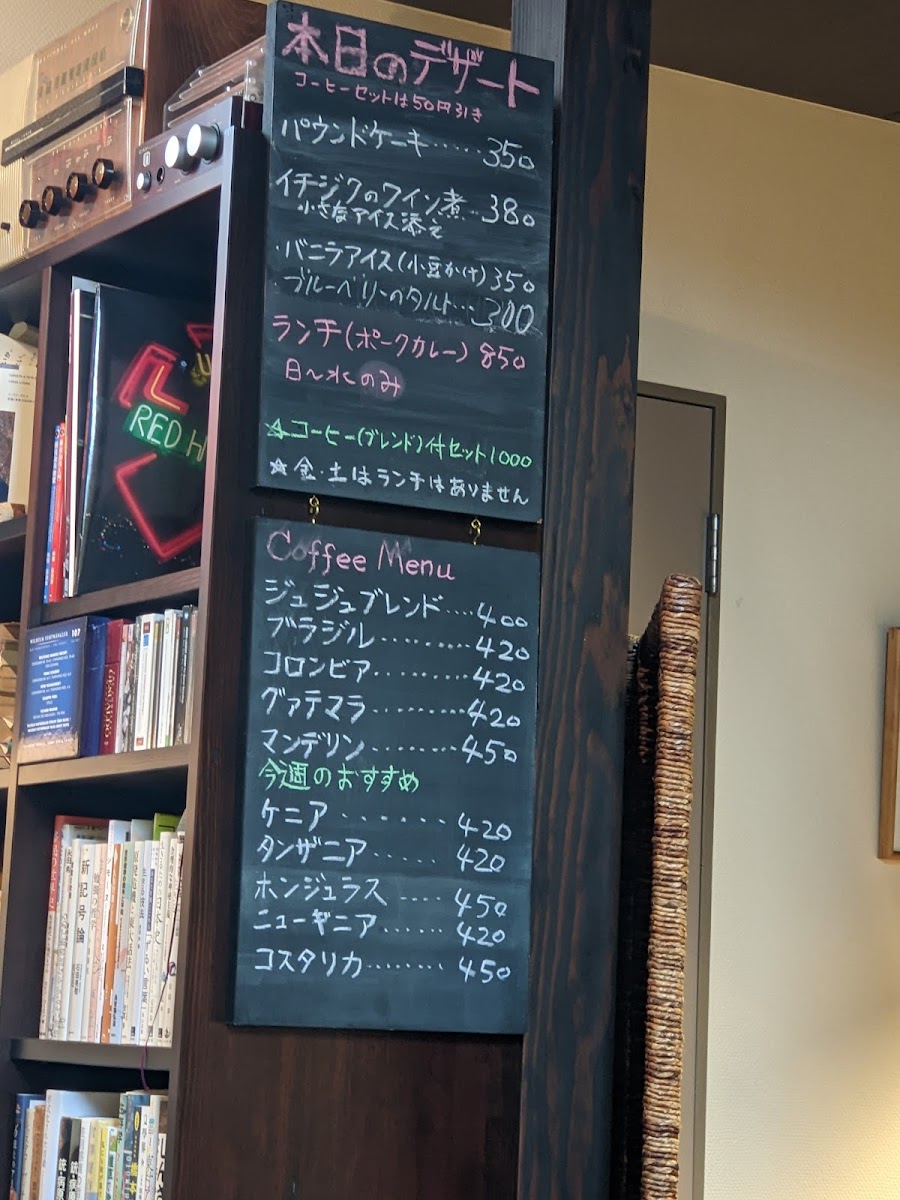 本日のデザート
コーヒーセットは50円引き
パウンドケーキ‥‥‥350
イチジクのワイン煮‥380
小さなアイス添え
・バニラアイス(小豆かけ)350
・ブルーベリーのタルト‥‥300
ランチ(ポークカレー) 850
日〜水のみ
☆コーヒー(ブレンド)付セット1000
☆金・土はランチはありません
Coffee Menu
ジュジュブレンド‥‥400
ブラジル‥‥‥‥420
コロンビア‥‥‥‥‥420
グァテマラ‥‥‥‥‥420
マンデリン‥‥‥‥‥450
今週のおすすめ
ケニア‥‥‥‥420
タンザニア‥‥‥420
ホンジュラス‥‥450
ニューギニア‥‥‥420
コスタリカ‥‥‥‥450
RED H
107
新記号論